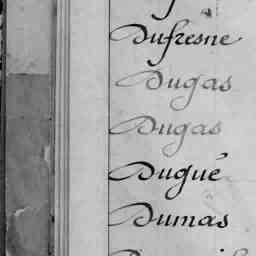 Dufresne
Dugas
Dugas
Dugué
Dumas